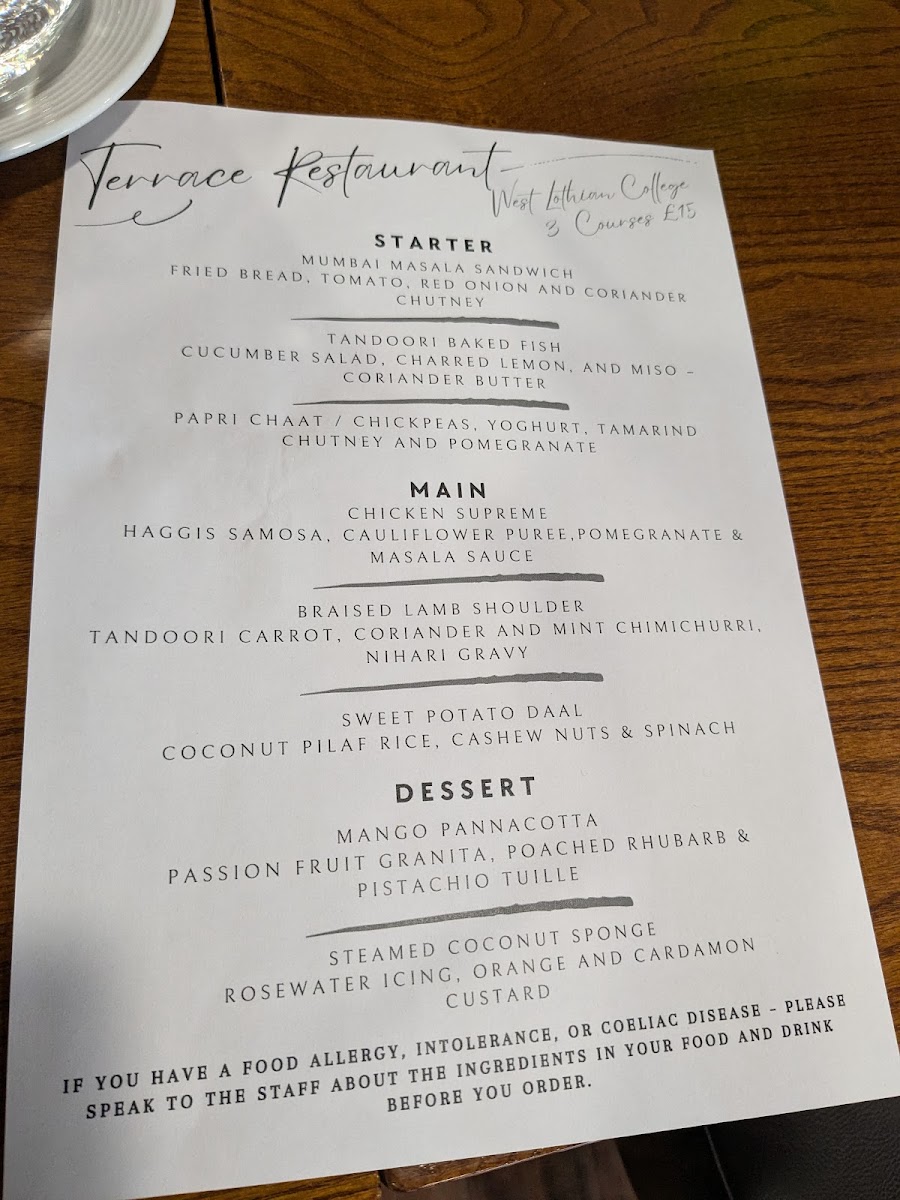 Terrace Restaurant
West Lothian College
3 Courses £15
STARTER
MUMBAI MASALA SANDWICH
FRIED BREAD, TOMATO, RED ONION AND CORIANDER
CHUTNEY
TANDOORI BAKED FISH
CUCUMBER SALAD, CHARRED LEMON, AND MISO -
CORIANDER BUTTER
PAPRI CHAAT / CHICKPEAS, YOGHURT, TAMARIND
CHUTNEY AND POMEGRANATE
MAIN
CHICKEN SUPREME
HAGGIS SAMOSA, CAULIFLOWER PUREE,POMEGRANATE &
MASALA SAUCE
BRAISED LAMB SHOULDER
TANDOORI CARROT, CORIANDER AND MINT CHIMICHURRI,
NIHARI GRAVY
SWEET POTATO DAAL
COCONUT PILAF RICE, CASHEW NUTS & SPINACH
DESSERT
MANGO PANNACOTTA
PASSION FRUIT GRANITA, POACHED RHUBARB &
PISTACHIO TUILLE
STEAMED COCONUT SPONGE
ROSEWATER ICING, ORANGE AND CARDAMON
CUSTARD
IF YOU HAVE A FOOD ALLERGY, INTOLERANCE, OR COELIAC DISEASE - PLEASE
SPEAK TO THE STAFF ABOUT THE INGREDIENTS IN YOUR FOOD AND DRINK
BEFORE YOU ORDER.